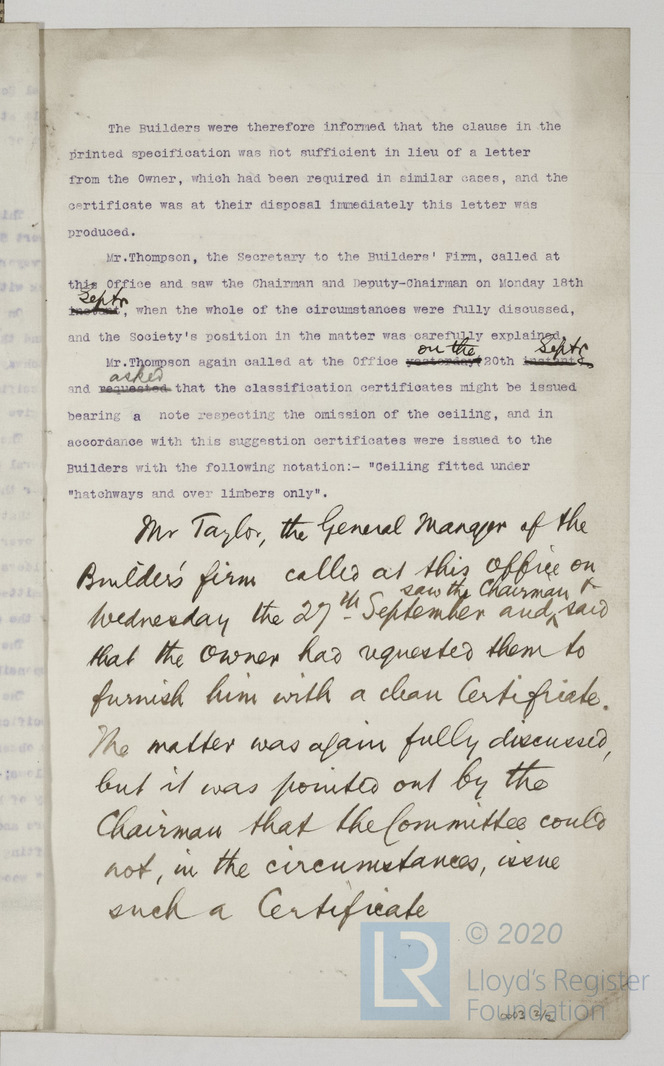 The Builders were therefore informed that the clause in the
printed specification was not sufficient in lieu of a letter
from the Owner, which had been required in similar cases, and the
certificate was at their disposal immediately this letter was
produced.
Mr.Thompson, the Secretary to the Builders' Firm, called at
this Office and saw the Chairman and Deputy-Chairman on Monday 18th
Septr
instant, when the whole of the circumstances were fully discussed,
and the Society's position in the matter was carefully explained.
on the Septr
Mr.Thompson again called at the Office yesterday, 20th instant,
asked
and requested that the classification certificates might be issued
bearing a note respecting the omission of the ceiling, and in
accordance with this suggestion certificates were issued to the
Builders with the following notation:- "Ceiling fitted under
"hatchways and over limbers only".
Mr Taylor, the General Manager of the
Builders' firm called at this Office on
saw the Chairman &
Wednesday the 27th September and said
that the Owner had requested them to
furnish him with a clean Certificate.
The matter was again fully discussed,
but it was pointed out by the
Chairman that the Committee could
not, in the circumstances, issue
such a Certificate
© 2020
LR
Lloyd's Register
Foundation
0003 2/2